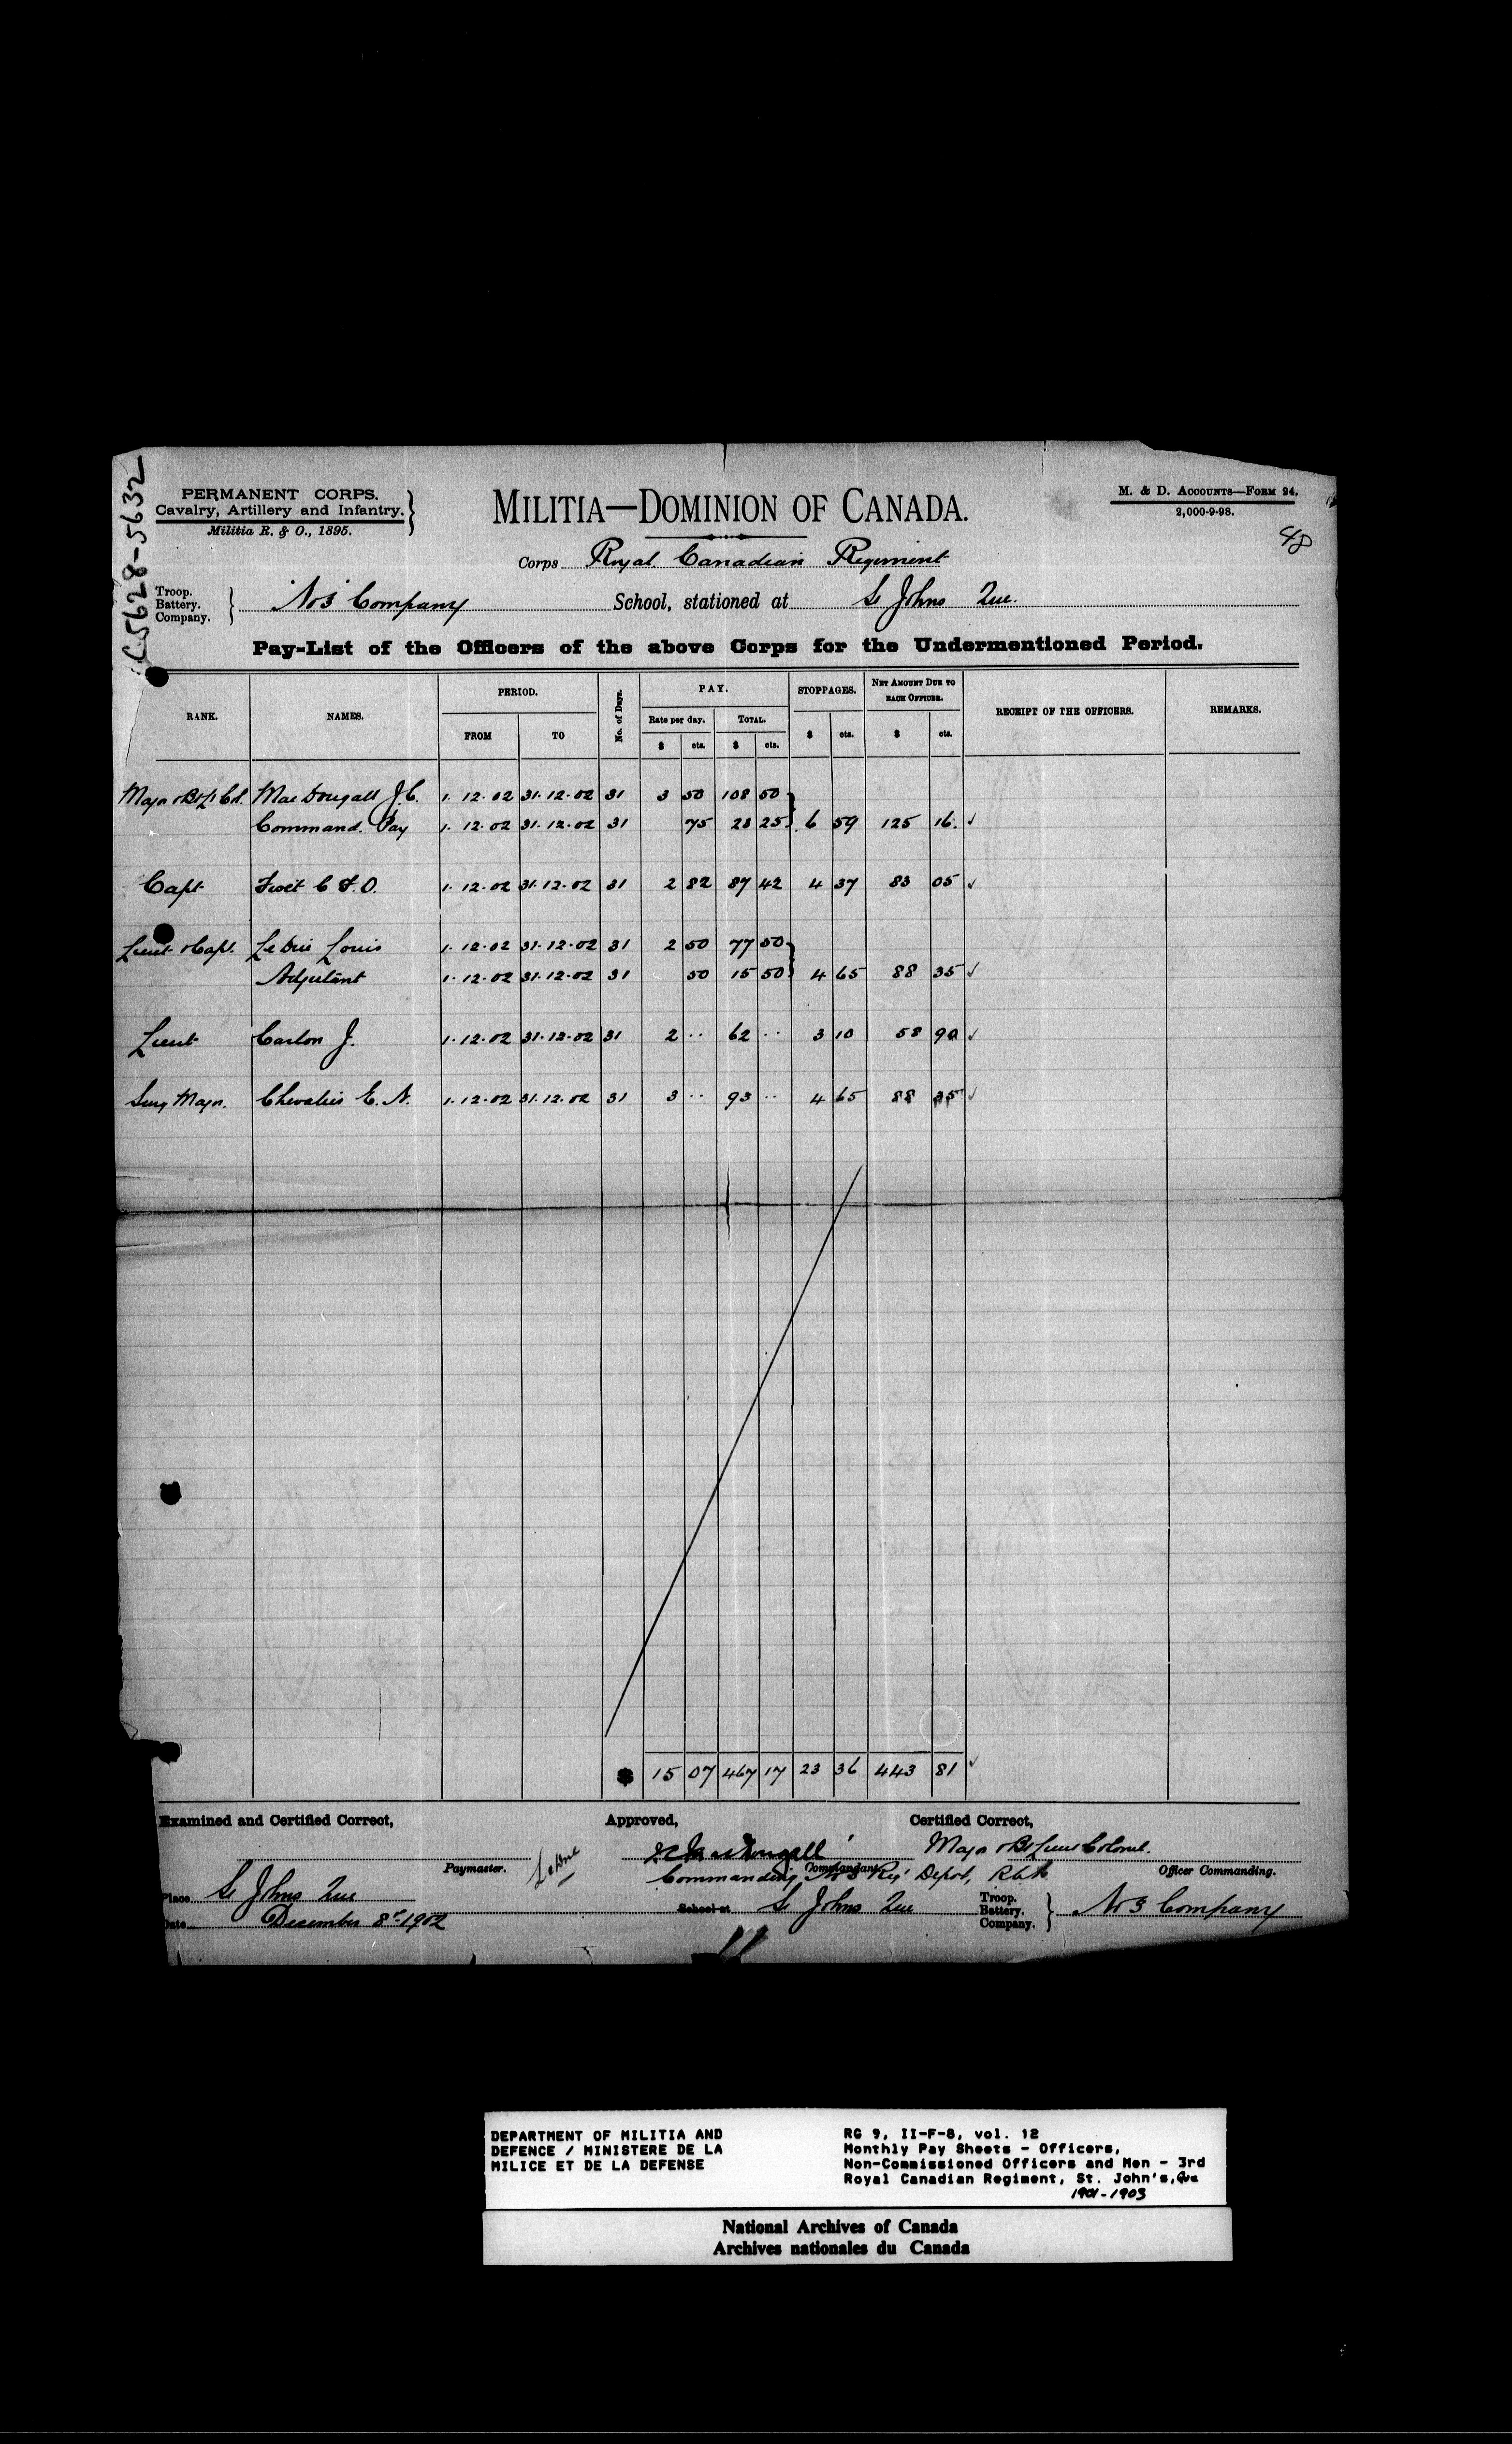 C-5628-5632
PERMANENT CORPS.
Cavalry, Artillery and Infantry.
Militia R. & O., 1895.
MILITIA—DOMINION OF CANADA.
M. & D. ACCOUNTS—FORM 94.
2,000-9-98.
48
Corps Royal Canadian Regiment
Troop.
Battery.
Company.
No 3 Company School, stationed at St Johns Que.
Pay-List of the Officers of the above Corps for the Undermentioned Period.
RANK. NAMES. PERIOD. No. of Days. PAY. STOPPAGES. NET AMOUNT DUE TO EACH OFFICER. RECEIPT OF THE OFFICERS. REMARKS.
FROM TO Rate per day. TOTAL.
$ cts. $ cts. $ cts. $ cts.
Major & Bt Lt Col. MacDougall J.C. 1.12.02 31.12.02 31 3 50 108 50
Command. Pay 1.12.02 31.12.02 31 75 23 25 6 59 125 16 ✓
Capt 1.12.02 31.12.02 31 2 82 87 42 4 37 83 05 ✓
Lieut & Capt. LeDuc Louis 1.12.02 31.12.02 31 2 50 77 50
Adjutant 1.12.02 31.12.02 31 50 15 50 4 65 88 35 ✓
Lieut Carlon J. 1.12.02 31.12.02 31 2 .. 62 .. 3 10 58 90 ✓
Surg Major. Chevalier E. N. 1.12.02 31.12.02 31 3 .. 93 .. 4 65 88 35 ✓
$ 15 07 467 17 23 36 443 81 ✓
Examined and Certified Correct, Approved, Certified Correct,
J C MacDougall Major & Bt Lieut Colonel.
Paymaster. LeDuc Commandant. Officer Commanding.
Commanding No 3 Reg Depot, R.C.R.
Place St Johns Que
School at St Johns Que
Troop.
Battery.
Company.
No 3 Company
Date December 8th 1902
DEPARTMENT OF MILITIA AND
DEFENCE / MINISTERE DE LA
MILICE ET DE LA DEFENSE
RG 9, II-F-8, vol. 12
Monthly Pay Sheets - Officers,
Non-Commissioned Officers and Men - 3rd
Royal Canadian Regiment, St. John's, Que
1901-1903
National Archives of Canada
Archives nationales du Canada